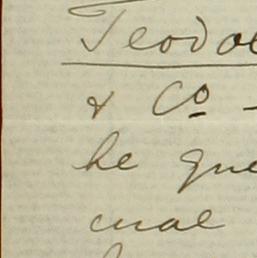 Teodo
& Co -
he que
cual